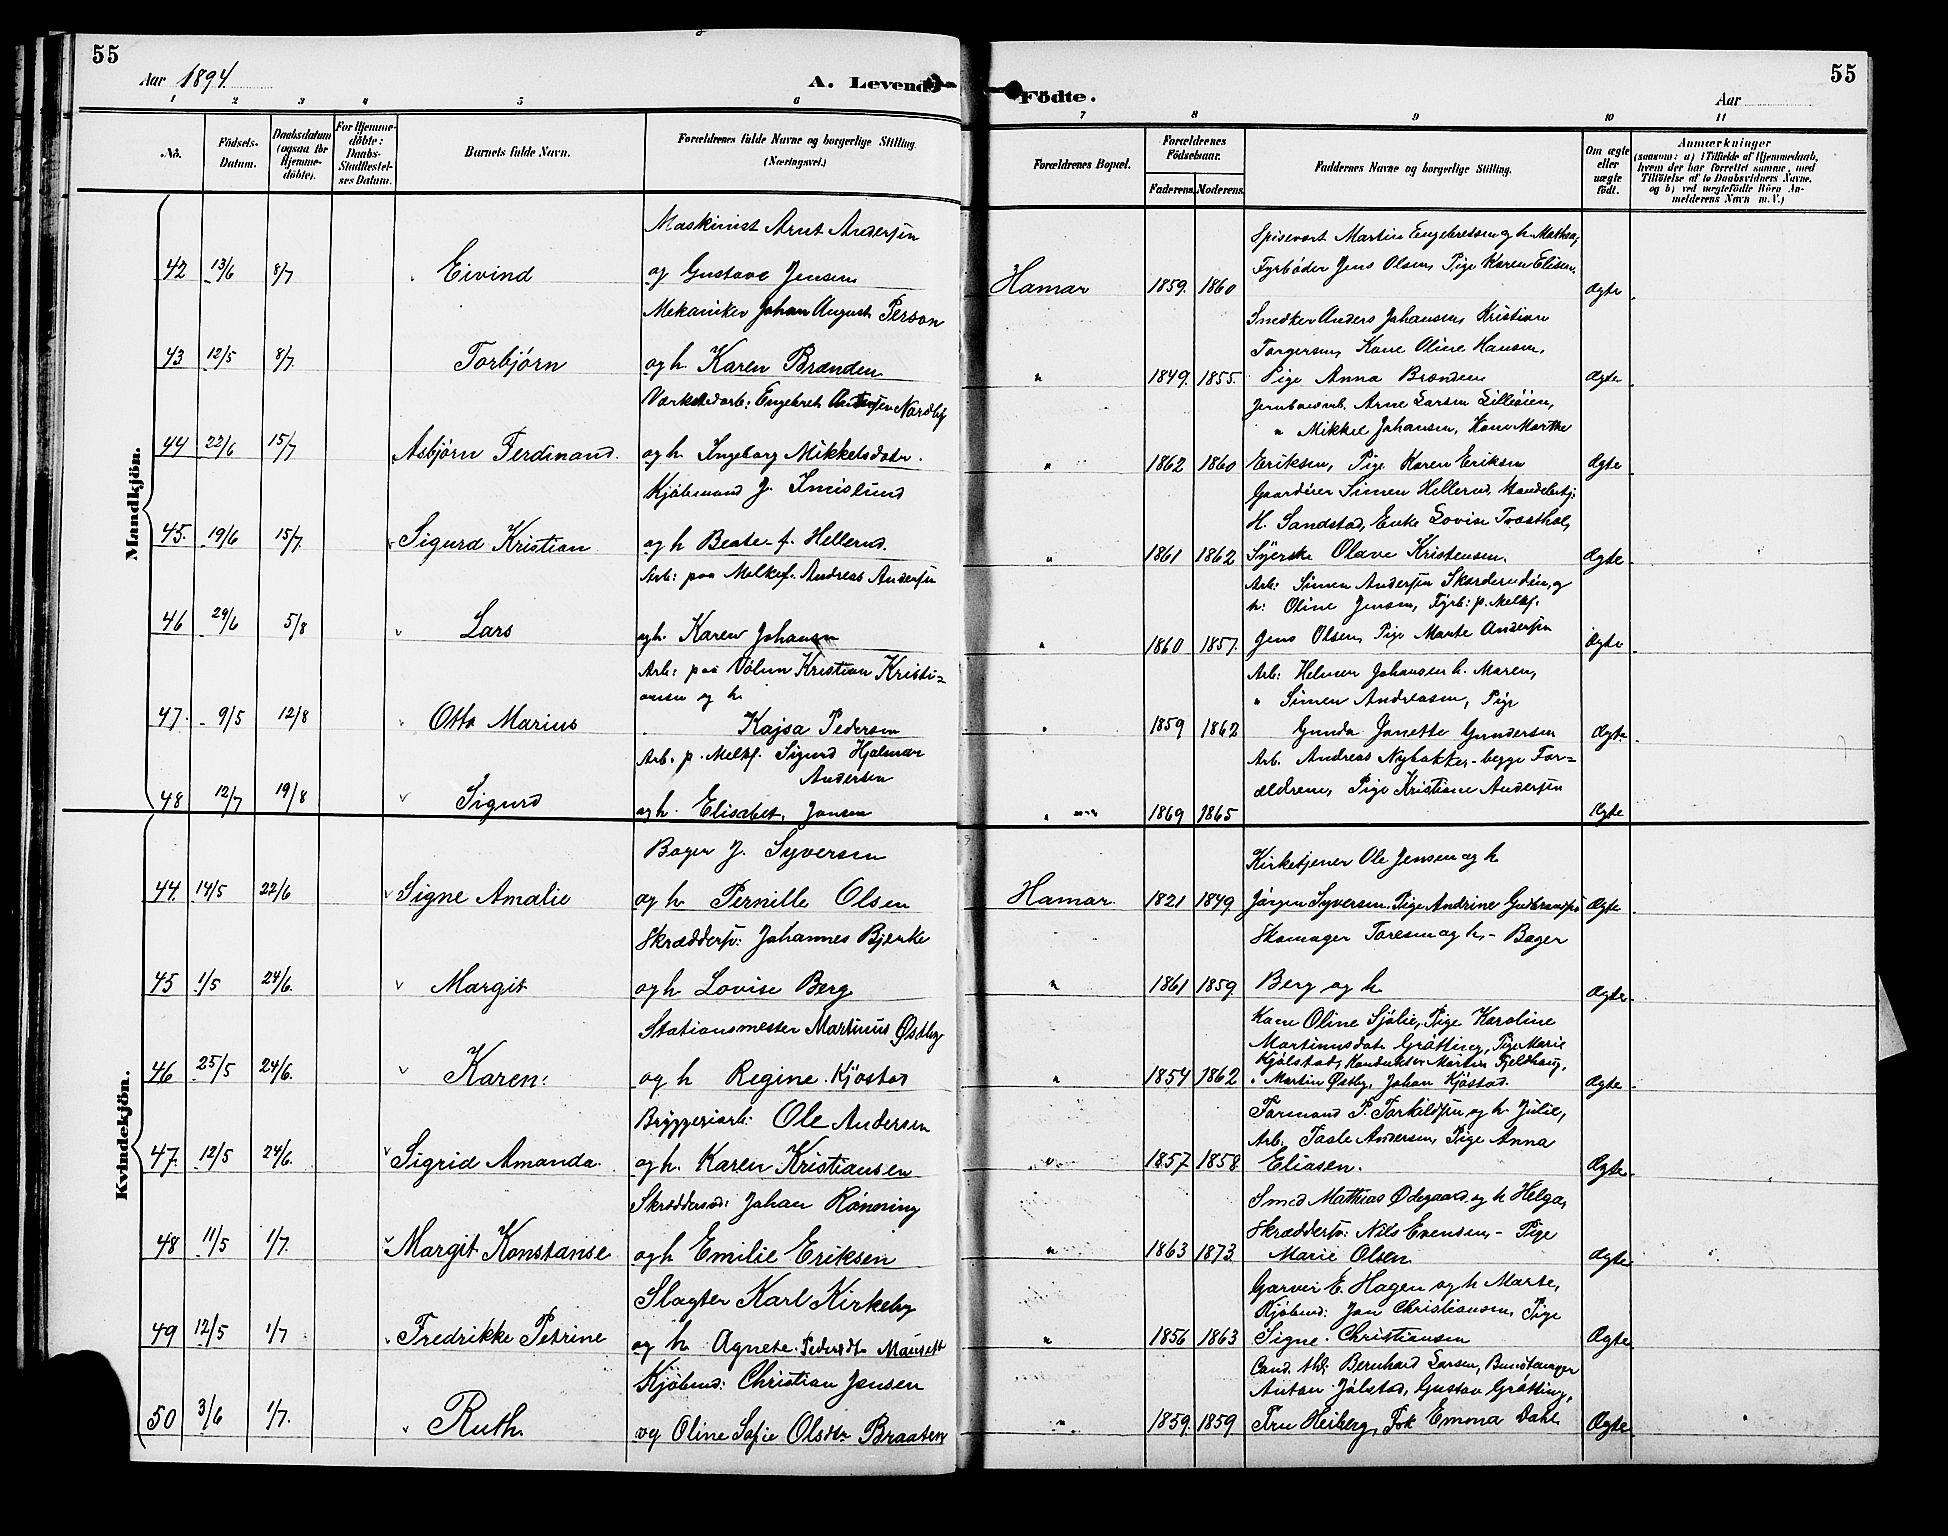 55
Aar 1894.
A. Levende
Födte.
Aar
55
1 2 3 4 5 6 7 8 9 10 11
No.
Födsels-Datum.
Daabsdatum (ogsaa for Hjemme-döbte).
For Hjemme-döbte: Daabs-Stadfæstel-ses Datum.
Barnets fulde Navn.
Forældrenes fulde Navne og borgerlige Stilling. (Næringsvei.)
Forældrenes Bopæl.
Forældrenes Födselsaar.
Faderens. Moderens.
Faddernes Navne og borgerlige Stilling.
Om ægte eller uægte födt.
Anmærkninger
(saasom: a) i Tilfælde af Hjemmedaab, hvem der har forrettet samme, med Tilföielse af to Daabsvidners Navne, og b) ved uægtefödte Börn Anmelderens Navn m. V.)
Mandkjön.
Maskinist Arnt Andersen
Spisevert Martin Engebretsen og h. Mathea,
42 13/6 8/7 Eivind og Gustava Jensen Hamar 1859. 1860 Fyrböder Jens Olsen, Pige Karen Elisen, Ægte
Mekaniker Johan August Person
Snedker Anders Johansen, Kristian
Torgersen, Kone Oline Hansen,
43 12/5 8/7. Torbjörn og h. Karen Brænden " 1849. 1855. Pige Anna Brænden Ægte
Værkstedarb: Engebret Nordby
Jernbanearb. Arne Larsen Lilleöien,
" Mikkel Johansen, Kone Marthe
44 22/6 15/7 Asbjörn Ferdinand. og h. Ingeborg Mikkelsdatr. " 1862 1860 Eriksen, Pige Karen Eriksen Ægte
Kjöbmand J. Imislund
Gaardeier Simen Hellerud, Handelsbtj.
H. Sandstad, Enke Lovise Trosthol,
45. 19/6 15/7. Sigurd Kristian og h Beate f. Hellerud. " 1861 1862 Syerske Olave Kristensen. Ægte
Arb: paa Melkef. Andreas Andersen
Arb: Simen Andersen Skarderudeie, og
h: Oline Jensen, Fyrb: p. Melkf.
46 29/6 5/8 Lars og h. Karen Johansen " 1860 1857. Jens Olsen, Pige Marte Andersen Ægte
Arb: paa Kristian Kristi-
ansen og h.
Arb: Helmer Johansen h. Maren,
" Simen Andreasen, Pige
47. 9/5 12/8 Otto Marius Kajsa Pedersen " 1859 1862 Gunda Janette Gundersen Ægte
Arb. p. Melkf. Sigurd Hjalmar
Andersen
Arb. Andreas Nybakke - begge For-
48 12/7 19/8 Sigurd og h. Elisabet Jansen " 1869 1865 ældrene, Pige Kristiane Andersen Ægte
Kvindekjön.
Bager J. Syversen
Kirketjener Ole Jensen og h
44. 14/5 22/6 Signe Amalie og h. Pernille Olsen Hamar. 1821 1849 Jörgen Syversen, Pige Andrine Gudbrandsen Ægte
Skræddersv: Johannes Bjerke
Skomager Toresen og h. - Bager
45 1/5 24/6. Margit og h Lovise Berg " 1861 1859. Berg og h Ægte
Stationsmester Martinus Østby
Kone Oline Sjölie, Pige Karoline
Martinusdatr Gröttting, Pige Marie
Kjölstad, Konduktör Martin Fjeldhaug,
46 25/5 24/6. Karen. og h Regine Kjöstad " 1854 1862 " Martin Østby, Johan Kjöstad. Ægte
Bryggeriarb: Ole Andersen
Formand P. Torkildsen og h. Julie,
Arb: Andersen, Pige Anna
47. 12/5 24/6. Sigrid Amanda. og h. Karen Kristiansen " 1857. 1858 Eliasen. Ægte
Skræddersvd: Johan Rönning
Smed Mathias Ødegaard og h Helga,
Skræddersv: Nils Evensen, - Pige
48 11/5 1/7. Margit Konstanse og h Emilie Eriksen " 1863 1873 Marie Olsen. Ægte
Slagter Karl Kirkeby
Garver E. Hagen og h Marte,
Kjöbmd: Jon Christiansen, Pige
49 12/5 1/7 Fredrikke Petrine og h Agnete Pedersdtr " 1856 1863 Signe Christiansen Ægte
Kjöbmd: Christian Jensen
Cand. thl: Bernhard Larsen, Bundtmager
Anton Jölstad, Gustav Grötting,
50 3/6 1/7. Ruth og Oline Sofie Olsdtr Braaten " 1859. 1859 Fru Heiberg, Frk Emma Dahl Ægte